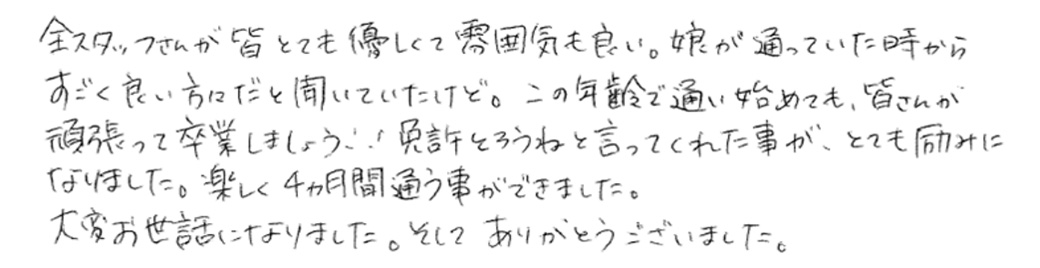 全スタッフさんが皆とても優しくて雰囲気も良い。娘が通っていた時から
すごく良い方々だと聞いていたけど。この年齢で通い始めても、皆さんが
頑張って卒業しましょう!!免許とろうねと言ってくれた事が、とても励みに
なりました。楽しく4ヵ月間通う事ができました。
大変お世話になりました。そして ありがとうございました。